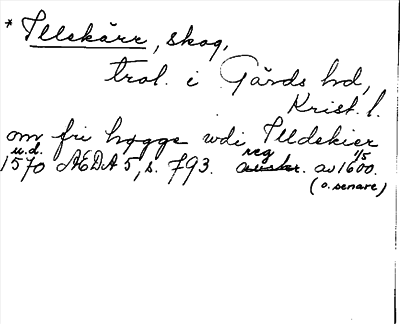 * Illskärr, skog,
trol. i Gärds hd,
Krist. l.
om fri høgge udi Illdskier
u.d. reg 1/5
1570 ÆDA 5, s. 793. avskr. av 1600.
(o. senare)